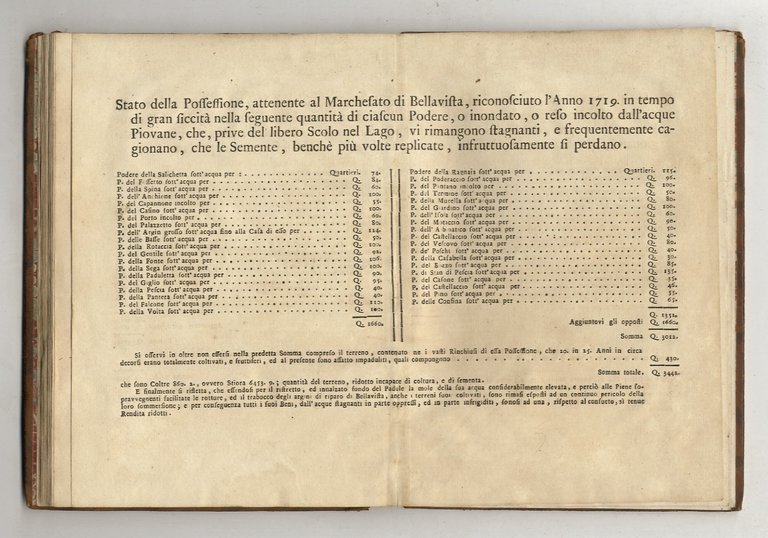 Stato della Possessione, attenente al Marchesato di Bellavista, riconosciuto l'Anno 1719. in tempo
di gran siccità nella seguente quantità di ciascun Podere, o inondato, o reso incolto dall'acque
Piovane, che, prive del libero Scolo nel Lago, vi rimangono stagnanti, e frequentemente ca-
gionano, che le Semente, benchè più volte replicate, infruttuosamente si perdano.
Podere della Salichetta sott' acqua per : Quartieri. 74.
P. del Fossetto sott' acqua per Q. 84.
P. della Spina sott' acqua per Q. 60.
P. dell' Anchione sott' acqua per Q. 100.
P. del Capannone incolto per Q. 55.
P. del Casino sott' acqua per Q. 100.
P. del Porto incolto per Q. 60.
P. del Palazzetto sott' acqua per Q. 80.
P. dell' Argin grosso sott' acqua fino alla Casa di esso per Q. 114.
P. delle Basse sott' acqua per Q. 50.
P. della Rotaccia sott' acqua per Q. 100.
P. del Gentile sott' acqua per Q.
P. della Fonte sott' acqua per Q. 106.
P. della Sega sott' acqua per Q. 100.
P. della Paduletta sott' acqua per Q. 90.
P. del Giglio sott' acqua per Q. 95.
P. della Pescia sott' acqua per Q. 40.
P. della Pantera sott' acqua per Q. 40.
P. del Falcone sott' acqua per Q. 110.
P. della Volta sott' acqua per Q. 100.
Q. 1660.
Podere della Ragnaia sott' acqua per Quartieri. 115.
P. del Poderaccio sott' acqua per Q. 96.
P. del Pantano incolto per Q. 100.
P. del Termine sott' acqua per Q. 50.
P. della Mucella sott' acqua per Q. 80.
P. del Giardino sott' acqua per Q. 100.
P. dell' Isola sott' acqua per Q. 60.
P. del sott' acqua per Q. 90.
P. dell' sott' acqua per Q. 50.
P. del Castellaccio sott' acqua per Q. 40.
P. del Vescovo sott' acqua per Q. 80.
P. de' Poschi sott' acqua per Q. 40.
P. della Casabella sott' acqua per Q. 30.
P. del sott' acqua per Q. 85.
P. di Stan di Pescia sott' acqua per Q. 135.
P. del Casone sott' acqua per Q. 55.
P. del Castellaccio sott' acqua per Q. 46.
P. del Pino sott' acqua per Q. 55.
P. delle Confina sott' acqua per Q. 65.
Q. 1352.
Aggiuntovi gli opposti Q. 1660.
Somma Q. 3012.
Si osservi in oltre non essersi nella predetta Somma compreso il terreno, contenuto ne i vasti Rinchiusi di essa Possessione, che 20. in 25. Anni in circa
decorsi erano totalmente coltivati, e fruttiferi, ed al presente sono affatto impaduliti, quali compongono Q. 430.
Somma totale. Q. 3442.
che sono Coltre 860. 2., ovvero Stiora 6453. 9.; quantità del terreno, ridotto incapace di coltura, e di sementa.
E finalmente si rifletta, che essendosi per il ristretto, ed innalzato fondo del Padule la mole della sua acqua considerabilmente elevata, e perciò alle Piene so-
pravvegnenti facilitate le rotture, ed il trabocco degli argini di riparo di Bellavista, anche i terreni suoi coltivati, sono rimasi esposti ad un continuo pericolo della
loro sommersione; e per conseguenza tutti i suoi Beni, dall' acque stagnanti in parte oppressi, ed in parte infrigiditi, sonosi ad una, rispetto al consueto, sì tenue
Rendita ridotti.